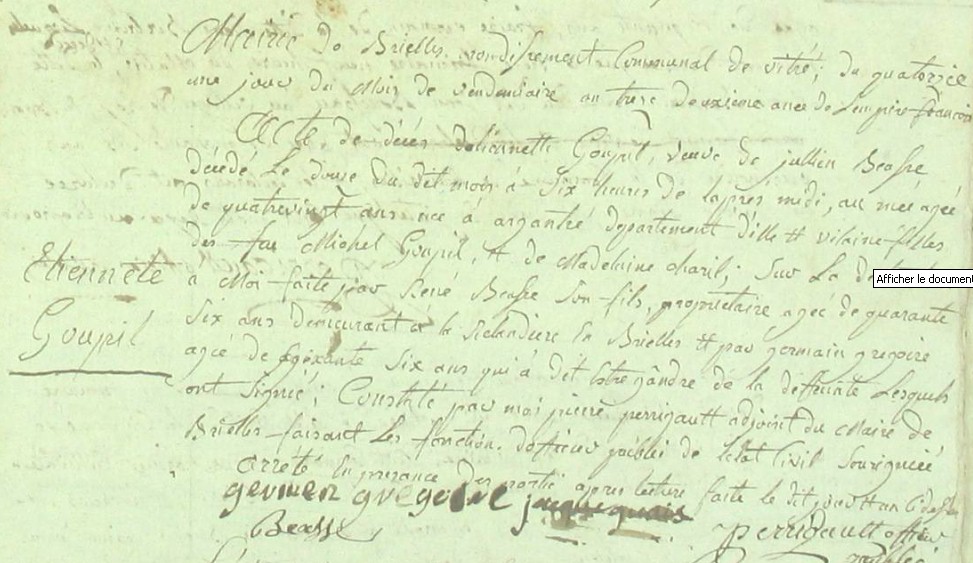 Mairie de Brielles, rondissement Communal de vitré; du quatorzie
une jour du Mois de vendemiaire an treze deuxieme anee de Lempire francois
Acte de décés détiennette Goupil, veuve de jullien Beasse
décédé Le douse du dit mois à Six heures de laprés midi, agée
de quatrevingt ans née à argantré département dille et vilaine filles
des feu Michel Goupil, et de Madeleine charil; Sur La
Afficher le document
à Moi faite par René Beasse Son fils, propriétaire, agée de quarante
Six ans demeurant a la Brielles et par germain gregoire
agée de soixante Six ans qui à dit Estre gandre de la deffunte Lesquels
ont Signée; Constaté par moi pierre perrigault adjoint du Maire de
Brielles faisant Les fonction dofficier publei de letat Civil Sousignéé
arreté En presance des partié apres lecture faite le dit jour et an
Etiennete
Goupil
germen gregoire
Beasse
perrigault officier